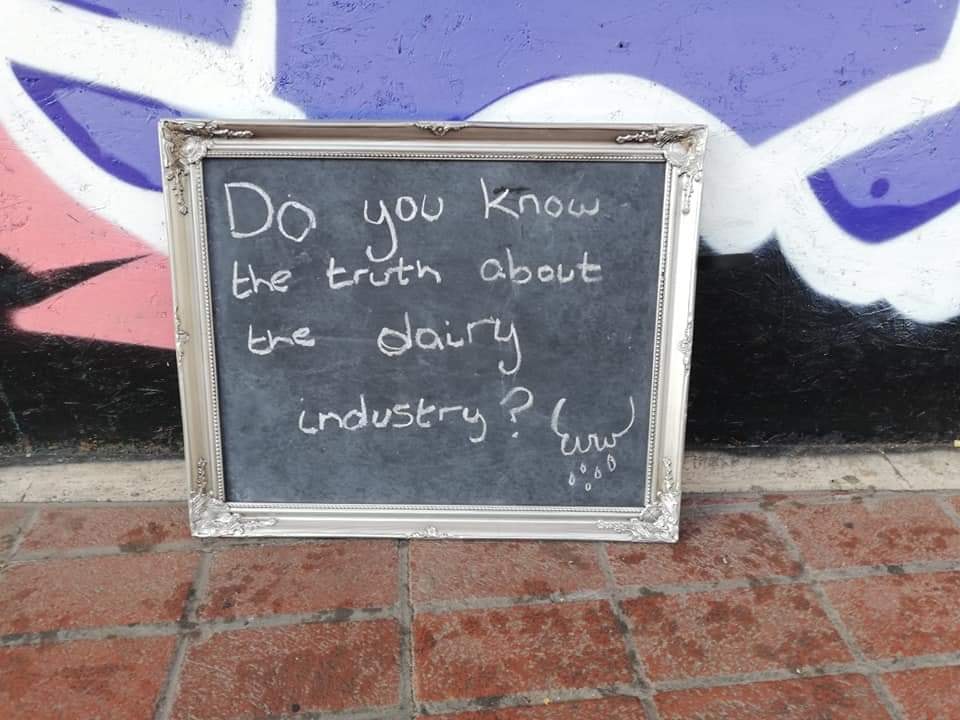 Do you know
the truth about
the dairy
industry?